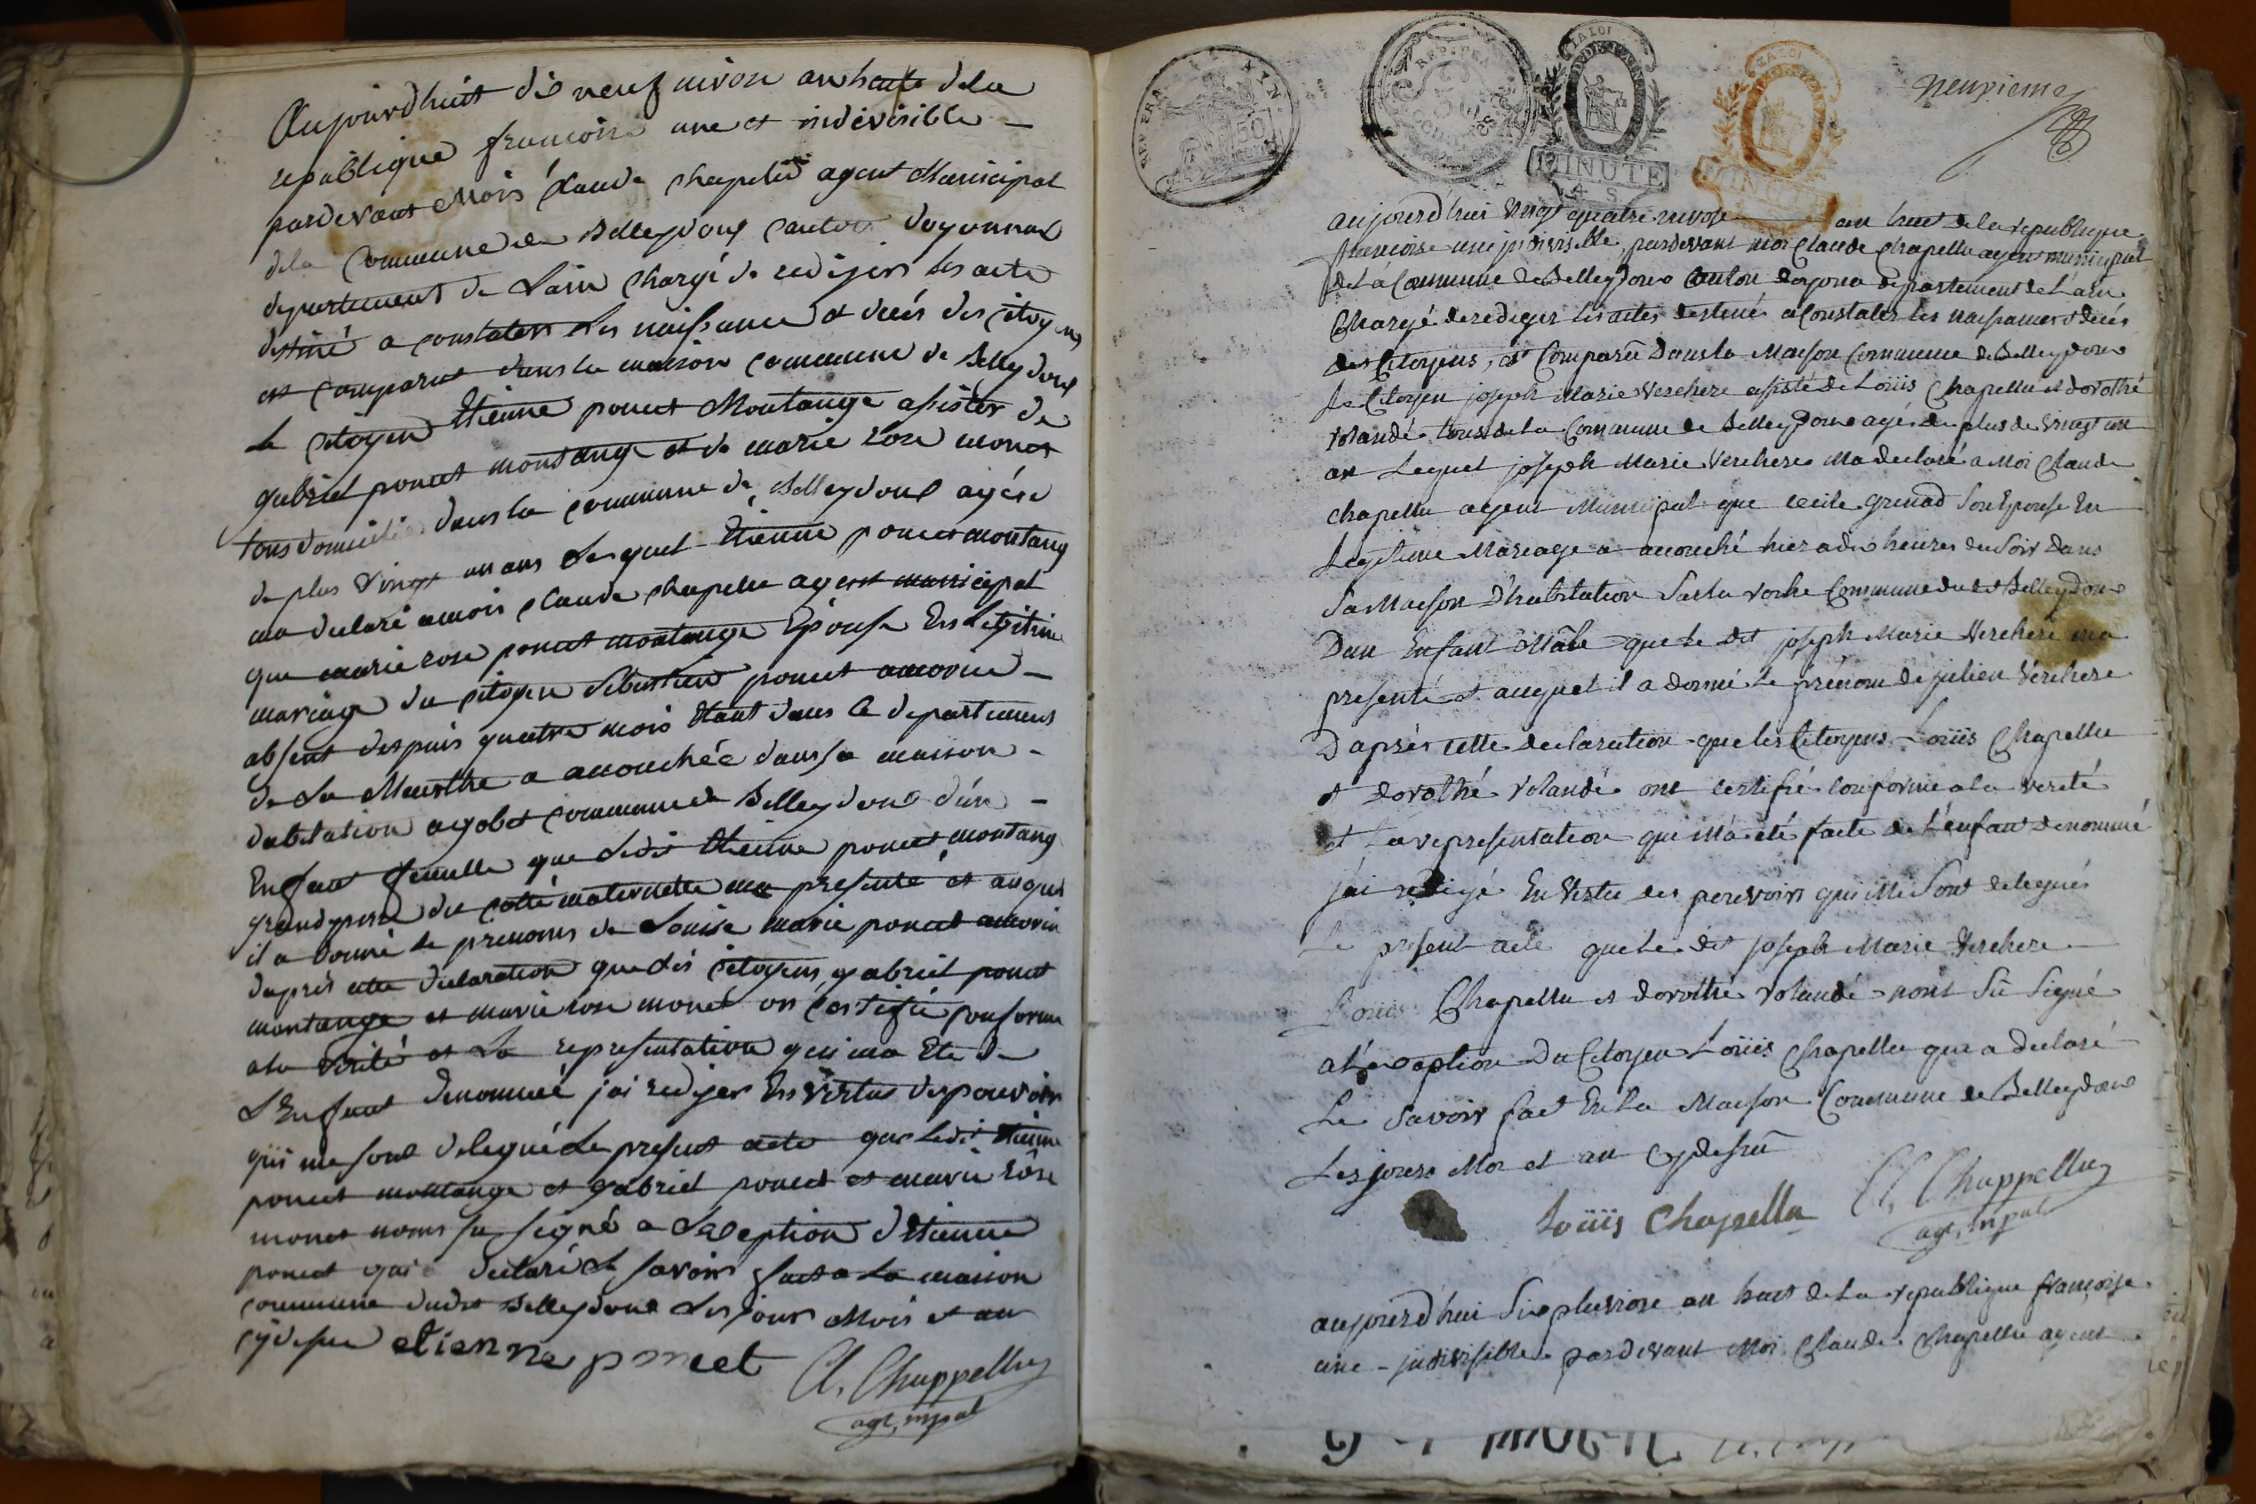 Aujourdhuit dis neuf nivose an huite dela
republique francoise une et indivisible
pardevant Mois Claude Chapellu agent Municipal
dela Commune de Belleydoux canton doyonnax
departement de Lain Chargé de rediger les acte
destiné a constater les naissance et decés des citoyens
est comparut dans la maison commune de Belleydoux
le citoyen Etienne poncet Montange assister de
gabriel poncet montange et de marie rose monet
tous domicilié dans la commune de Belleydoux agése
de plus vingt un ans Lesquel Etienne poncet montang
ma declaré amois Claude Chapellu agent municipal
que marie rose poncet montange Epouse En Legitime
mariage du citoyen Sebastien poncet
absent depuis quatre mois Etant dans le departement
de La Meurthe a accouchée dans sa maison
dabitation commune de Belleydoux dún
Enfant femelle que ledit Etienne poncet montang
grand pere du cotté maternelle ma presenté et auquel
il a donné le prenoms de Louise marie poncet
daprés cette declaration que dis citoyens gabriel poncet
montange et marie rose monet on certifié conforme
ala vérité et La representation qui ma Ete de
LEnfant denommé jai rediger En vertus des pouvoir
qui me sont delegué Le present acte que ledit Etienne
poncet montange et gabriel poncet et marie rôse
monet nons su signé a Lexeption dEtienne
poncet qui a declaré Le savoir fait a La maison
commune dudit Belleydoux Les jour Mois et an
cydesu etienne poncet
Cl. Chappellu
agt. mpal
REP. FRA.
50
REP. FRA.
LA LOI
MINUTE
4 S
LA LOI
MINUTE
neuvieme
aujourdhui vingt quatre nivose an huit de la republique
francoise une indivisible, pardevant moi Claude Chapellu agent municipal
de La Commune de Belleydoux Canton doyonna departement de L'ain
Chargé de rediger les actes destinés a constater les naissances & decés
des Citoyens, est Comparû Dans la Maison Commune de Belleydoux
Le Citoyen joseph Marie Verchere assisté de Loüis Chapellu et dorothé
rolandé tous de la Commune de Belleydoux agés de plus de vingt un
an Lequel joseph Marie Verchere Ma declaré a Moi Claude
Chapellu agent Municipal que cecile grenad Son Epouse En
Legitime Mariage a accouché hier a dix heures du Soir Dans
Sa Maison D'habitation Commune dudt Belleydoux
Dun Enfant Mâle que le dit joseph Marie Verchere ma
presenté et auquel il a donné Le prénom de julien Vérchere
D'aprés cette declaration que les Citoyens Loüis Chapellu
& dorothé rolandé ont certifié conforme a la verité
et La representation qui M'a été faite de L'enfant denommé
j'ai redigé En Vertu des pouvoirs qui Me Sont delegués
Le present acte que Le dit joseph Marie Verchere
Loüis Chapellu et dorothé rolandé nont Sû Signé
a L'exception Du Citoyen Loüis Chapellu qui a declaré
Le Savoir fait En La Maison Commune de Belleydoux
Les jours Moi et an Cydessû
Loüis Chapellu
Cl. Chappellu
agt. mpal
aujourdhui Six pluviose an huit de La republique françoise
une indivisible pardevant Moi Claude Chapellu agent